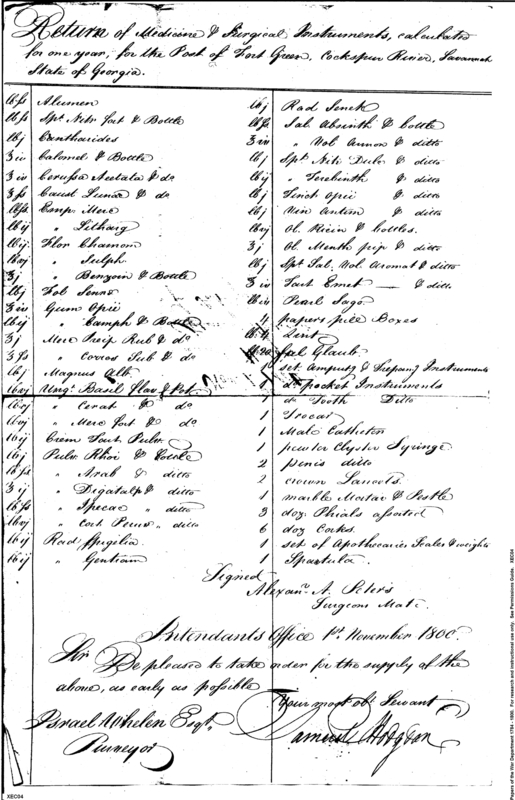 Return of Medicine & Surgical Instruments, calculated
for one year, for the Post of Fort Green, Cockspur River, Savannah
State of Georgia.
lb ſs Alumen
lb ſs Spt. Nitr. fort & Bottle
lb j Cantharides
℥ iv Calomel & Bottle
℥ iv Cerussa Acetata & do
℥ ſs Caust Lunar & do
lb ſs Emp. Merc
lb ij " Litharg
lb ij Flor Chamom
lb vj " Sulph
℥ j " Benzoin & Bottle
lb j Fol Senna
℥ iv Gum Opii
lb ij " Camph & Bottle
℥ j Merc Precip Rub & do
℥ ſs " Corros Sub & do
lb j Magnes Alb
lb vj Ungt. Basil flav & Pot
lb vj " Cerat & do
lb vj " Merc fort & do
lb ij Crem Tart Pulv.
lb j Pulv. Rhoi & Bottle
lb ſs " Arab & ditto
℥ ij " Digatalp & ditto
lb ſs " Ipecac " ditto
lb vj " Cort Peruv " ditto
lb ij Rad
lb ij " Gentiam
lb j Rad Senek
lb ſs Sal Absinth & bottle
℥ iv " Vol Ammon & ditto
lb j Spt. Nitri Dulc & ditto
lb ij " Terebinth & ditto
lb j Tinct Opii & ditto
lb j Vin Antim & ditto
lb vj Ol. Ricin & bottles.
℥ j Ol. Menth pip & ditto
lb j Spt Sal. Vol Aromat & ditto
℥ iv Tart Emet — & ditto
lb iv Pearl Sago
4 papers pill Boxes
Lint
Sal Glaub
1 set Amputg & Trepang Instruments
1 do pocket Instruments
1 do Tooth Ditto
1 Trocar
1 Male Catheter
1 pewter Clyster Syringe
2 penis ditto
2 crown Lancets
1 marble Mortar & Pestle
3 doz. Phials assorted
6 doz Corks.
1 set of Apothecaries Scales & weights
1 Spatula
Signed
Alexanr. A. Peters
Surgeons Mate.
Intendants Office 1st. November 1800.
Sir Be pleased to take order for the supply of the
above, as early as possible
Your most obt Servant
Israel Whelen Esqr.
Samuel Hodgdon
Purveyor
XEC04
Papers of the War Department 1784 - 1800. For research and instructional use only. See Permissions Guide. XEC04